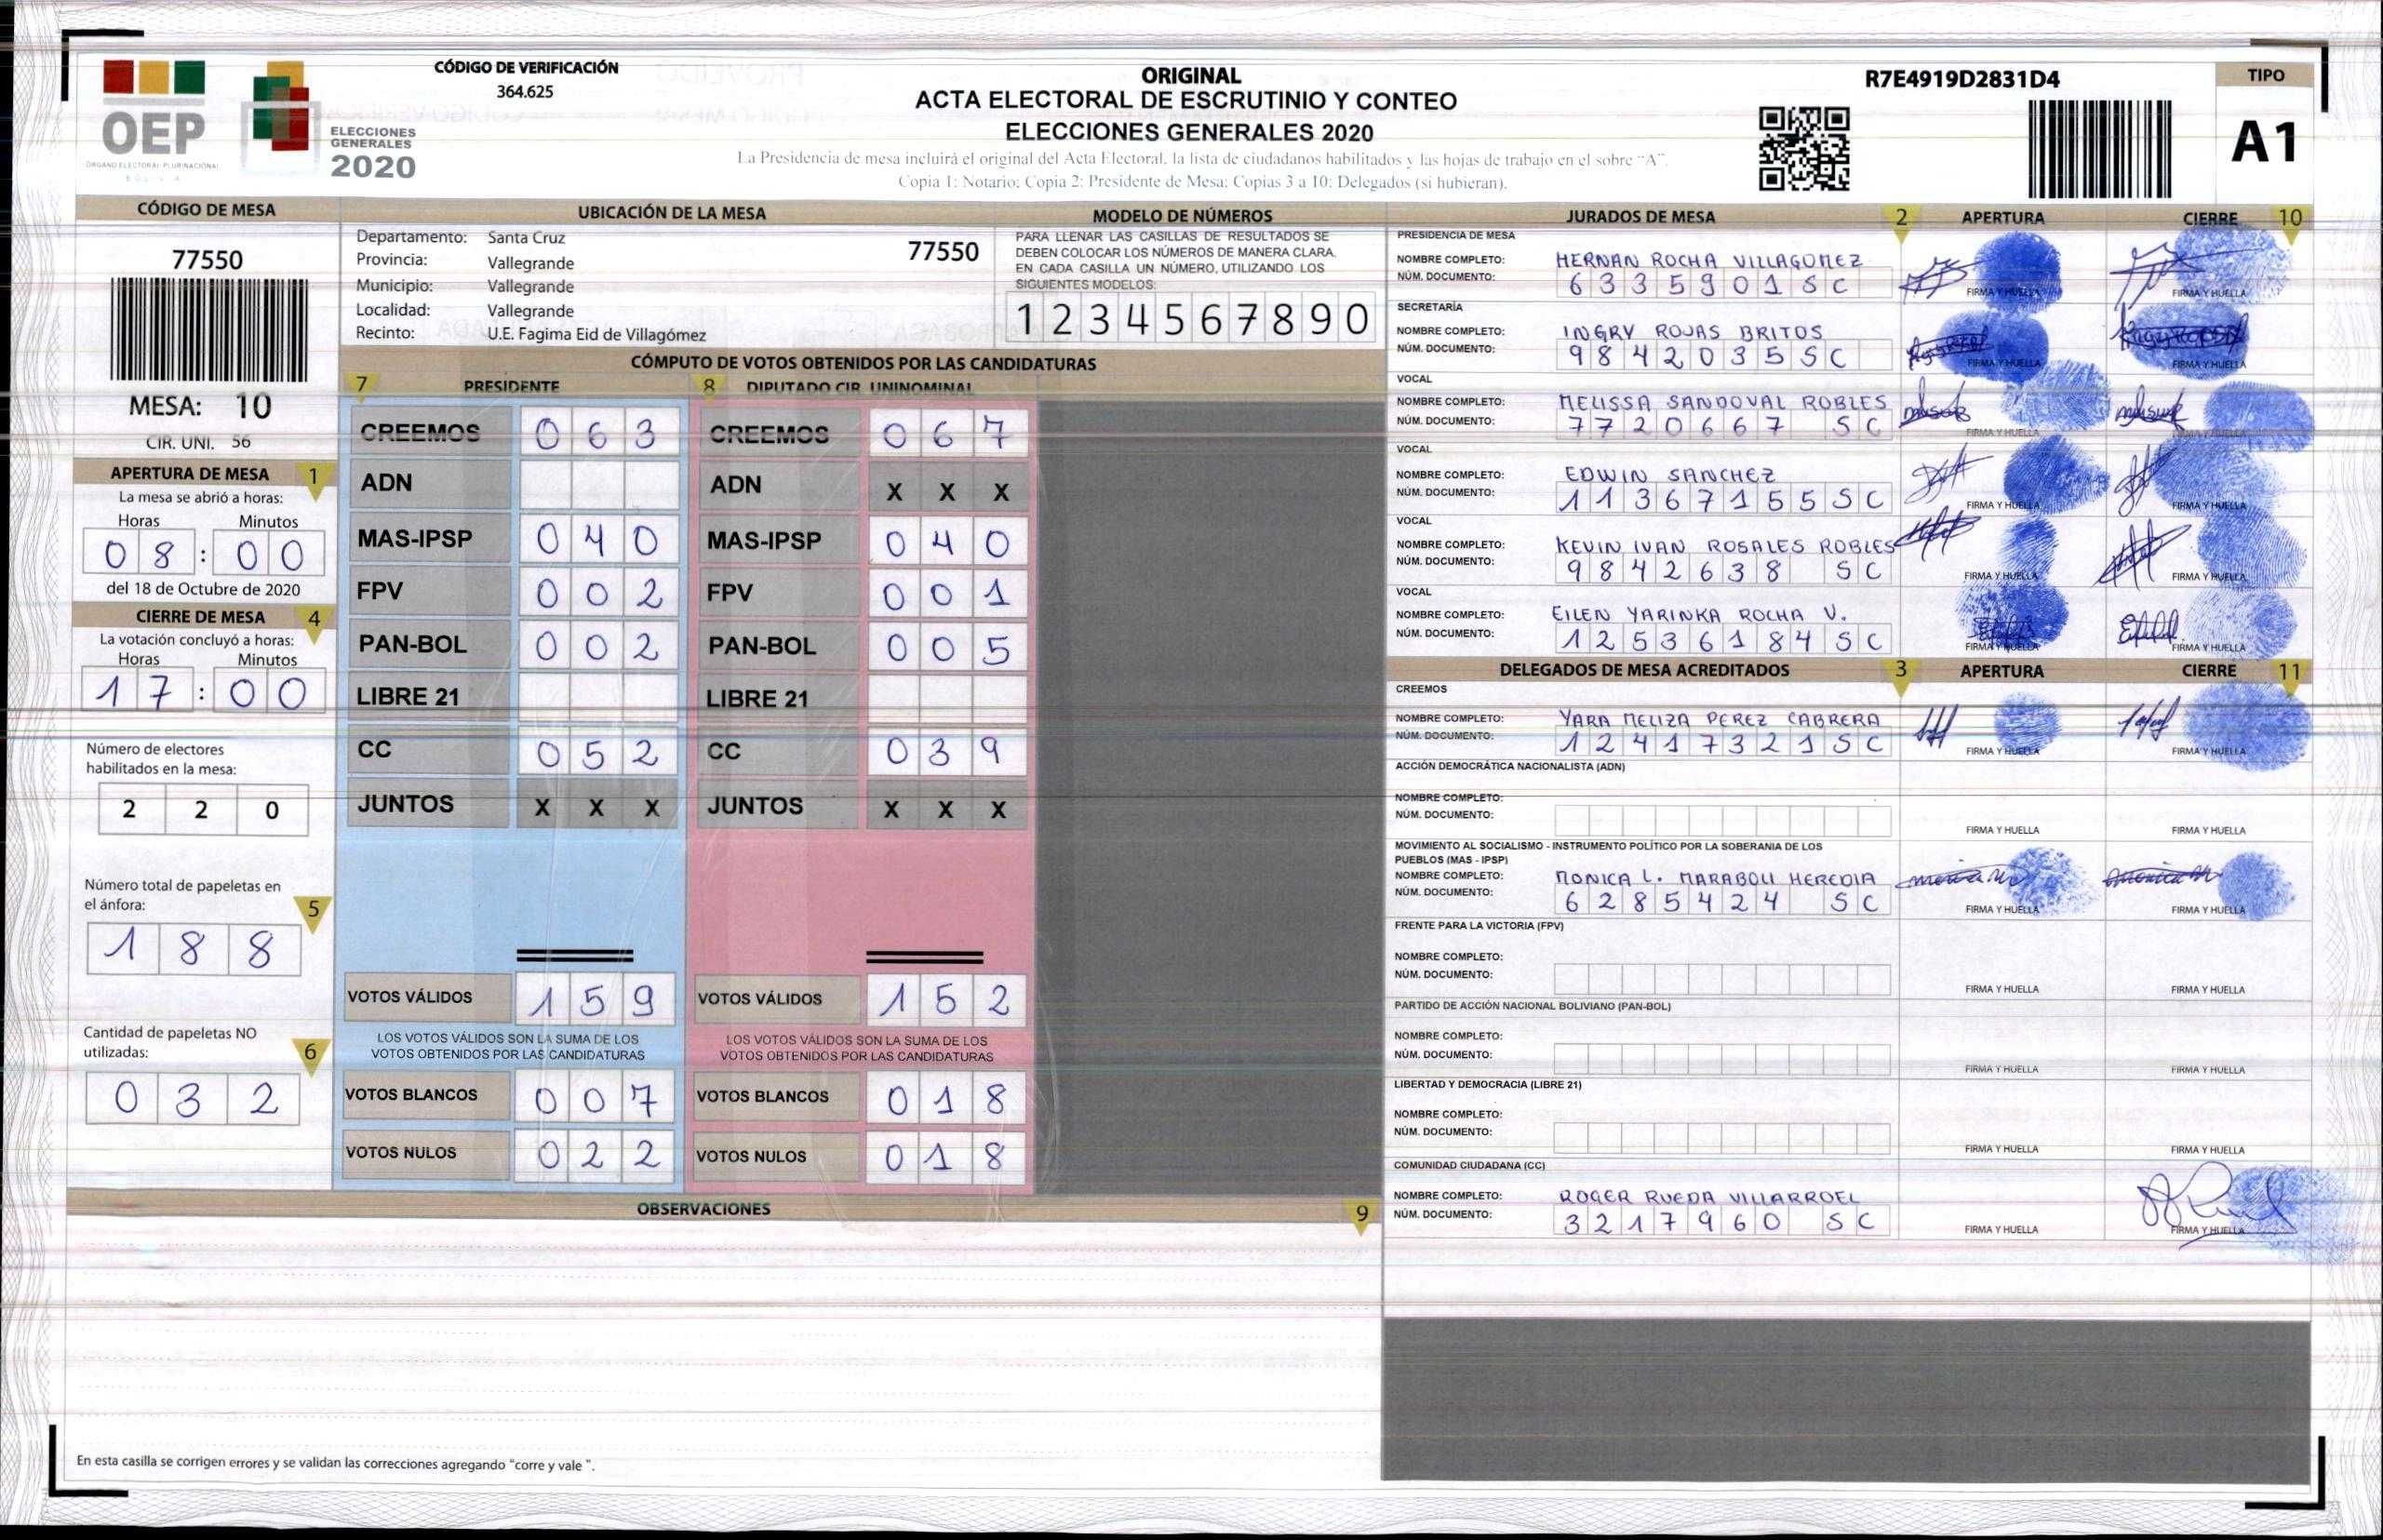 OEP
ÓRGANO ELECTORAL PLURINACIONAL
BOLIVIA
ELECCIONES
GENERALES
2020
CÓDIGO DE VERIFICACIÓN
364.625
ORIGINAL
ACTA ELECTORAL DE ESCRUTINIO Y CONTEO
ELECCIONES GENERALES 2020
La Presidencia de mesa incluirá el original del Acta Electoral, la lista de ciudadanos habilitados y las hojas de trabajo en el sobre “A”.
Copia 1: Notario; Copia 2: Presidente de Mesa; Copias 3 a 10: Delegados (si hubieran).
R7E4919D2831D4
TIPO
A1
CÓDIGO DE MESA
77550
MESA: 10
CIR. UNI. 56
APERTURA DE MESA 1
La mesa se abrió a horas:
Horas Minutos
08 : 00
del 18 de Octubre de 2020
CIERRE DE MESA 4
La votación concluyó a horas:
Horas Minutos
17 : 00
Número de electores
habilitados en la mesa:
2 2 0
Número total de papeletas en
el ánfora: 5
1 8 8
Cantidad de papeletas NO
utilizadas: 6
0 3 2
UBICACIÓN DE LA MESA
Departamento: Santa Cruz
77550
Provincia: Vallegrande
Municipio: Vallegrande
Localidad: Vallegrande
Recinto: U.E. Fagima Eid de Villagómez
MODELO DE NÚMEROS
PARA LLENAR LAS CASILLAS DE RESULTADOS SE
DEBEN COLOCAR LOS NÚMEROS DE MANERA CLARA.
EN CADA CASILLA UN NÚMERO, UTILIZANDO LOS
SIGUIENTES MODELOS:
1 2 3 4 5 6 7 8 9 0
CÓMPUTO DE VOTOS OBTENIDOS POR LAS CANDIDATURAS
7 PRESIDENTE 8 DIPUTADO CIR. UNINOMINAL
CREEMOS 0 6 3 CREEMOS 0 6 7
ADN ADN X X X
MAS-IPSP 0 4 0 MAS-IPSP 0 4 0
FPV 0 0 2 FPV 0 0 1
PAN-BOL 0 0 2 PAN-BOL 0 0 5
LIBRE 21 LIBRE 21
CC 0 5 2 CC 0 3 9
JUNTOS X X X JUNTOS X X X
VOTOS VÁLIDOS 1 5 9 VOTOS VÁLIDOS 1 5 2
LOS VOTOS VÁLIDOS SON LA SUMA DE LOS LOS VOTOS VÁLIDOS SON LA SUMA DE LOS
VOTOS OBTENIDOS POR LAS CANDIDATURAS VOTOS OBTENIDOS POR LAS CANDIDATURAS
VOTOS BLANCOS 0 0 7 VOTOS BLANCOS 0 1 8
VOTOS NULOS 0 2 2 VOTOS NULOS 0 1 8
OBSERVACIONES 9
En esta casilla se corrigen errores y se validan las correcciones agregando “corre y vale ”.
JURADOS DE MESA 2 APERTURA CIERRE 10
PRESIDENCIA DE MESA
NOMBRE COMPLETO: HERNAN ROCHA VILLAGOMEZ
NÚM. DOCUMENTO: 6335901SC
FIRMA Y HUELLA FIRMA Y HUELLA
SECRETARÍA
NOMBRE COMPLETO: INGRY ROJAS BRITOS
NÚM. DOCUMENTO: 9842035SC
FIRMA Y HUELLA FIRMA Y HUELLA
VOCAL
NOMBRE COMPLETO: MELISSA SANDOVAL ROBLES
NÚM. DOCUMENTO: 7720667 SC
FIRMA Y HUELLA FIRMA Y HUELLA
VOCAL
NOMBRE COMPLETO: EDWIN SANCHEZ
NÚM. DOCUMENTO: 11367155SC
FIRMA Y HUELLA FIRMA Y HUELLA
VOCAL
NOMBRE COMPLETO: KEVIN IVAN ROSALES ROBLES
NÚM. DOCUMENTO: 9842638 SC
FIRMA Y HUELLA FIRMA Y HUELLA
VOCAL
NOMBRE COMPLETO: EILEN YARINKA ROCHA V.
NÚM. DOCUMENTO: 12536184SC
FIRMA Y HUELLA FIRMA Y HUELLA
DELEGADOS DE MESA ACREDITADOS 3 APERTURA CIERRE 11
CREEMOS
NOMBRE COMPLETO: YARA MELIZA PEREZ CABRERA
NÚM. DOCUMENTO: 12417321SC
FIRMA Y HUELLA FIRMA Y HUELLA
ACCIÓN DEMOCRÁTICA NACIONALISTA (ADN)
NOMBRE COMPLETO:
NÚM. DOCUMENTO:
FIRMA Y HUELLA FIRMA Y HUELLA
MOVIMIENTO AL SOCIALISMO - INSTRUMENTO POLÍTICO POR LA SOBERANIA DE LOS
PUEBLOS (MAS - IPSP)
NOMBRE COMPLETO: MONICA L. MARABOLI HEREDIA
NÚM. DOCUMENTO: 6285424 SC
FIRMA Y HUELLA FIRMA Y HUELLA
FRENTE PARA LA VICTORIA (FPV)
NOMBRE COMPLETO:
NÚM. DOCUMENTO:
FIRMA Y HUELLA FIRMA Y HUELLA
PARTIDO DE ACCIÓN NACIONAL BOLIVIANO (PAN-BOL)
NOMBRE COMPLETO:
NÚM. DOCUMENTO:
FIRMA Y HUELLA FIRMA Y HUELLA
LIBERTAD Y DEMOCRACIA (LIBRE 21)
NOMBRE COMPLETO:
NÚM. DOCUMENTO:
FIRMA Y HUELLA FIRMA Y HUELLA
COMUNIDAD CIUDADANA (CC)
NOMBRE COMPLETO: ROGER RUEDA VILLARROEL
NÚM. DOCUMENTO: 3217960 SC
FIRMA Y HUELLA FIRMA Y HUELLA